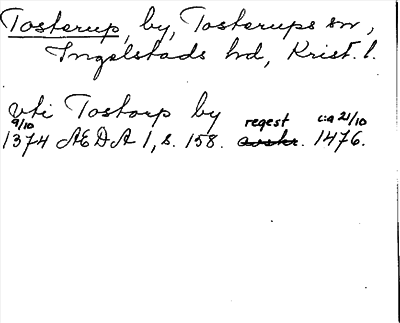 Tosterup, by, Tosterups sn,
Ingelstads hd, Krist. l.
vti Tostorp by
9/10 regest c:a 21/10
1374 ÆDA 1, s. 158. avskr. 1476.